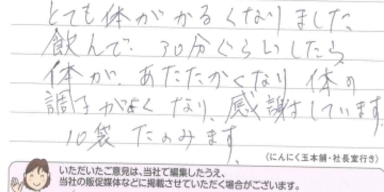 とても体がかるくなりました
飲んで、30分ぐらいしたら
体が、あたたかくなり 体の
調子がよく なり、感謝しています。
10袋 たのみます。
(にんにく玉本舗・社長室行き)
いただいたご意見は、当社で編集したうえ、
当社の販促媒体などに掲載させていただく場合がございます。